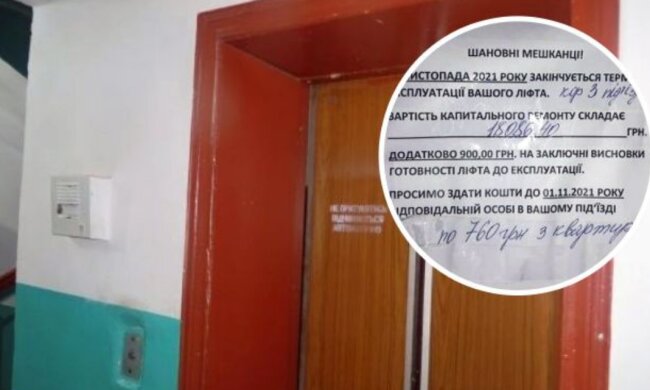 ШАНОВНІ МЕШКАНЦІ!
ИСТОПАДА 2021 РОКУ ЗАКІНЧУЄТЬСЯ ТЕРМ
КСПЛУАТАЦІЇ ВАШОГО ЛІФТА.
АРТІСТЬ КАПІТАЛЬНОГО РЕМОНТУ СКЛАДАЄ
18086,40 ГРН.
ДОДАТКОВО 900,00 ГРН. НА ЗАКЛЮЧНІ ВИСНОВКИ
ГОТОВНОСТІ ЛІФТА ДО ЕКСПЛУАТАЦІЇ.
РОСИМО ЗДАТИ КОШТИ ДО 01.11.2021 РОКУ
ІДПОВІДАЛЬНІЙ ОСОБІ В ВАШОМУ ПІД'ЇЗДІ
по 760 грн з квартир
НЕ
АВТОМАТИЧНО